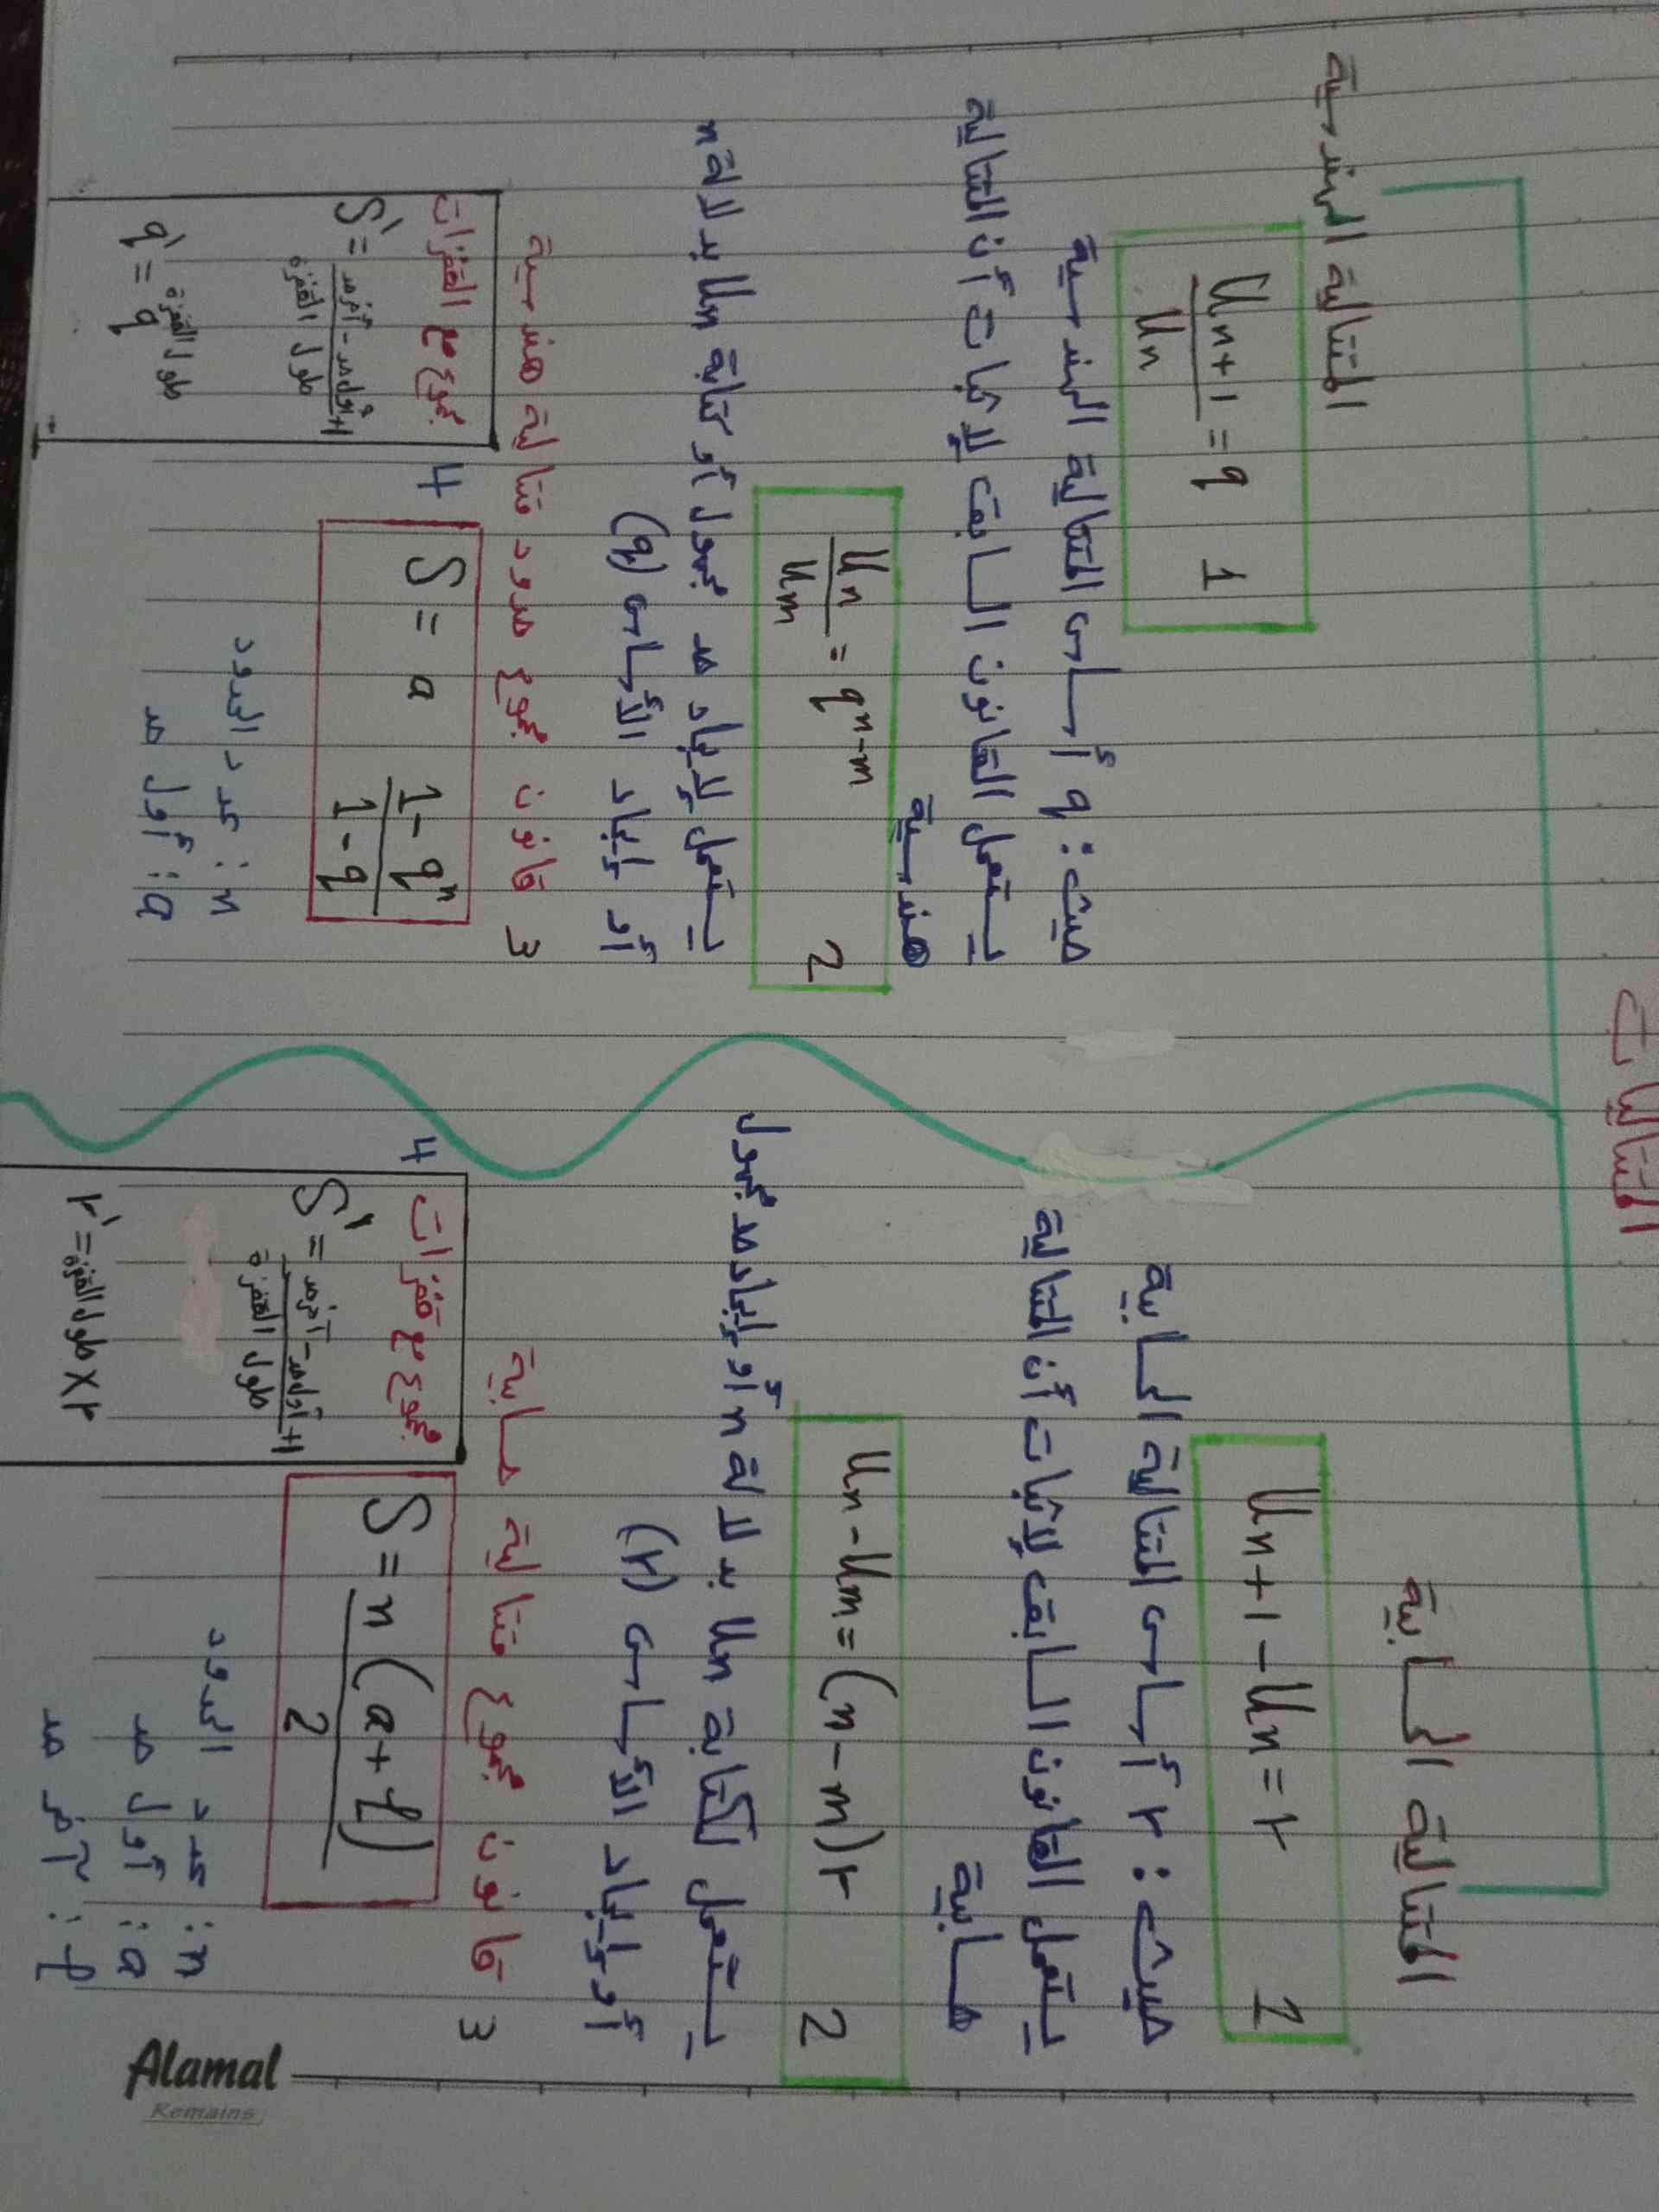 المتتاليات
المتتالية الحسابية
Un+1 - Un = r 1
حيث: r أساس المتتالية الحسابية
يستعمل القانون السابق لإثبات أن المتتالية
حسابية
Un - Um = (n - m)r 2
يستعمل لكتابة Un بدلالة n أو إيجاد حد مجهول
أو إيجاد الأساس (r)
3 قانون مجموع متتالية حسابية
S = n(a + l) / 2
n: عدد الحدود
a: أول حد
l: آخر حد
4
مجموع مع قفزات
S' = آخر حد - أول حد / طول القفزة +1
r' = طول القفزة × r
المتتالية الهندسية
Un+1 / Un = q 1
حيث: q أساس المتتالية الهندسية
يستعمل القانون السابق لإثبات أن المتتالية
هندسية
Un / Um = q^n-m 2
يستعمل لإيجاد حد مجهول أو كتابة Un بدلالة n
أو إيجاد الأساس (q)
3 قانون مجموع حدود متتالية هندسية
S = a 1 - q^n / 1 - q
n: عدد الحدود
a: أول حد
4
مجموع مع القفزات
S' = آخر حد - أول حد / طول القفزة +1
q' = q^طول القفزة
Alamal
Remains